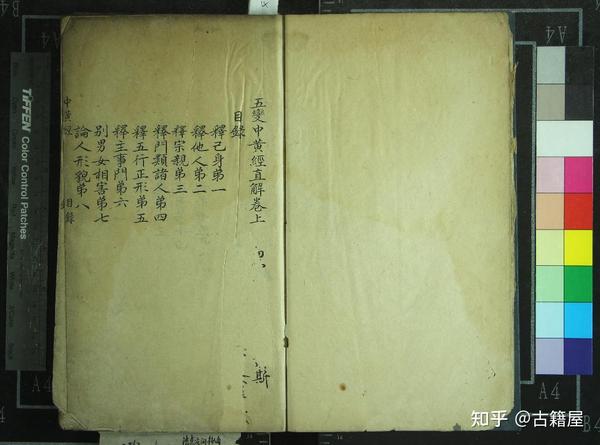 五變中黃經直解卷上
目錄
釋己身第一
釋他人第二
釋宗親第三
釋門類諸人第四
釋五行正形第五
釋主事門第六
別男女相害第七
論人形貌第八
目錄
斯
TIFFEN Color Control Patches
A4
A4
B4
知乎 @古籍屋